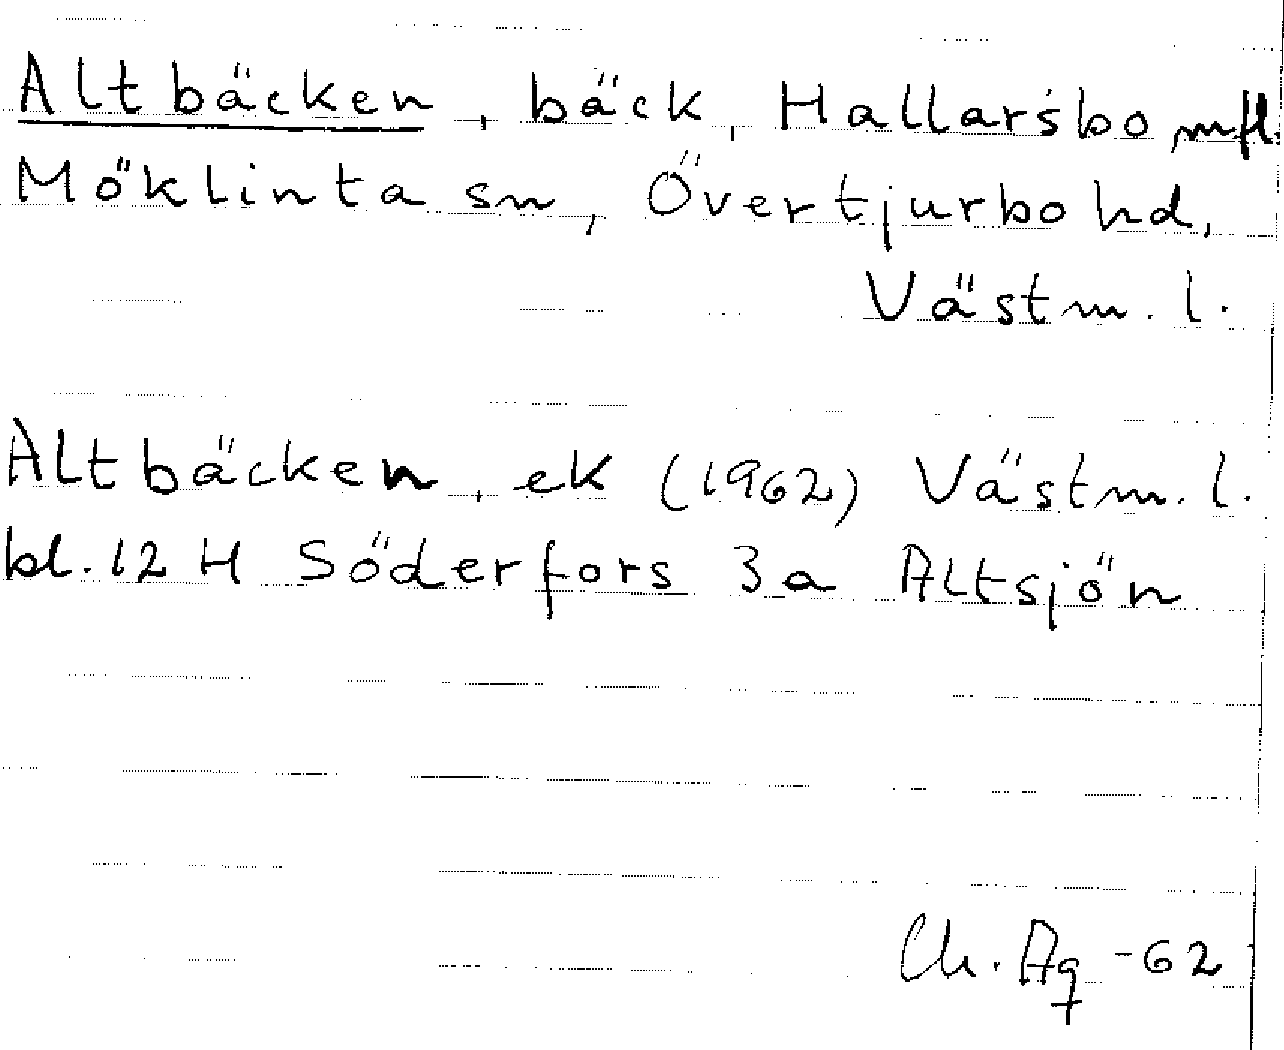 Altbäcken, bäck, Hallarsbo mfl.
Möklinta sn, Övertjurbo hd,
Västm. l.
Altbäcken, ek (1962) Västm. l.
bl. 12 H Söderfors 3a Altsjön
Ch. Ag -62